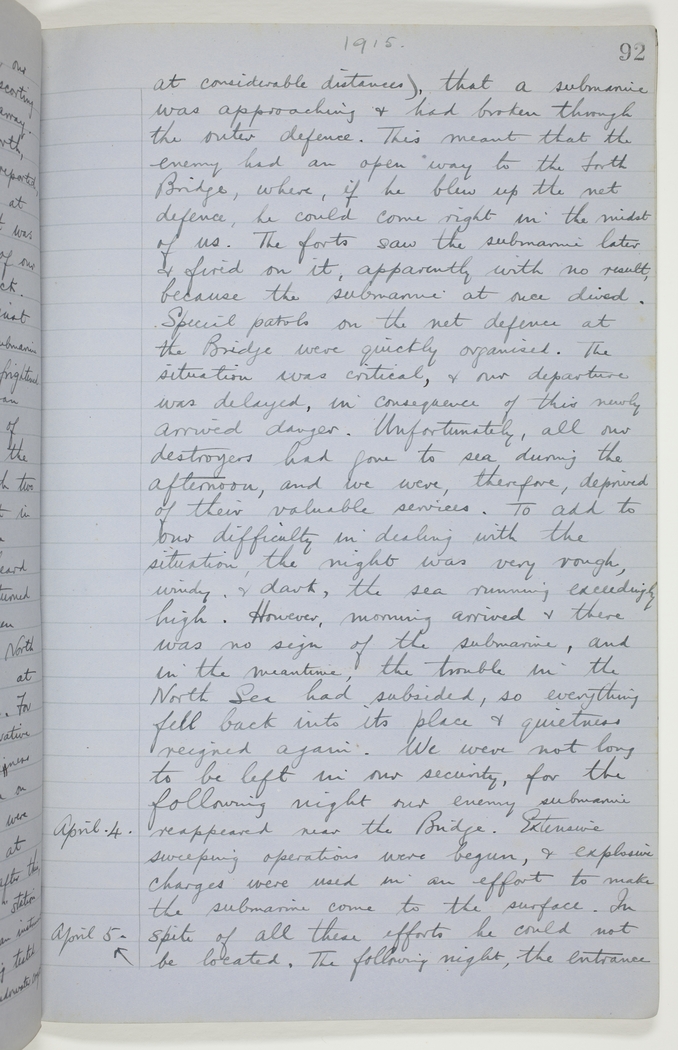 1915.
92
at considerable distances), that a submarine
was approaching & had broken through
the outer defence. This meant that the
enemy had an open way to the Forth
Bridge, where, if he blew up the net
defence, he could come right in the midst
of us. The forts saw the submarine later
& fired on it, apparently with no result,
because the submarine at once dived.
Special patrols on the net defence at
the Bridge were quickly organised. The
situation was critical, & our departure
was delayed, in consequence of this newly
arrived danger. Unfortunately, all our
destroyers had gone to sea during the
afternoon, and we were, therefore, deprived
of their valuable services. To add to
our difficulty in dealing with the
situation, the night was very rough,
windy, & dark, the sea running exceedingly
high. However, morning arrived & there
was no sign of the submarine, and
in the meantime, the trouble in the
North Sea had subsided, so everything
fell back into its place & quietness
reigned again. We were not long
to be left in our security, for the
following night our enemy submarine
April. 4. reappeared near the Bridge. Extensive
sweeping operations were begun, & explosive
charges were used in an effort to make
the submarine come to the surface. In
April 5. spite of all these efforts he could not
be located. The following night, the entrance